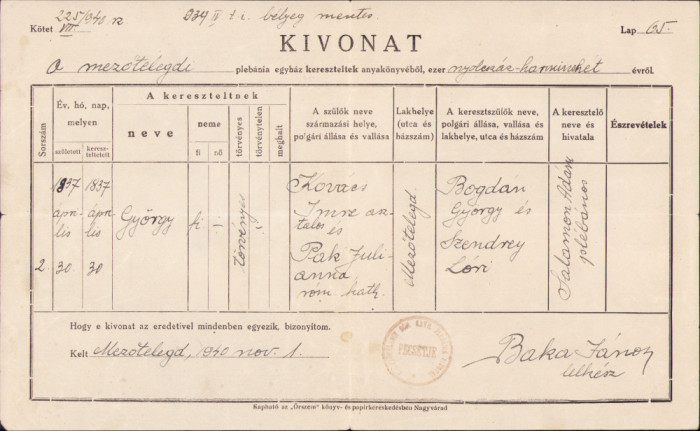 225/1940 sz   934 IV t. c. bélyeg mentes
Kötet VII.   Lap 65.
KIVONAT
a mezőtelegdi plebánia egyház kereszteltek anyakönyvéből, ezer nyolcszáz-harminchét évről.
Sorszám
Év, hó, nap, melyen
született
keresz-
teltetett
A kereszteltnek
neve
neme
fi
nő
törvényes
törvénytelen
meghalt
A szülők neve
származási helye,
polgári állása és vallása
Lakhelye
(utca és
házszám)
A keresztszülők neve,
polgári állása, vallása és
lakhelye, utca és házszám
A keresztelő
neve és
hivatala
Észrevételek
2.
1837
ápri-
lis
30
1837
ápri-
lis
30
György
fi
törvényes
Kovács
Imre asz-
talos és
Pák Juli-
anna
róm. kath.
Mezőtelegd
Bogdan
György és
Szendrey
Lóri
Salamon Ádám
plébános
Hogy e kivonat az eredetivel mindenben egyezik, bizonyítom.
Kelt Mezőtelegd, 1940 nov. 1.
Baka János
lelkész
Kapható az „Őrszem" könyv- és papírkereskedésben Nagyvárad